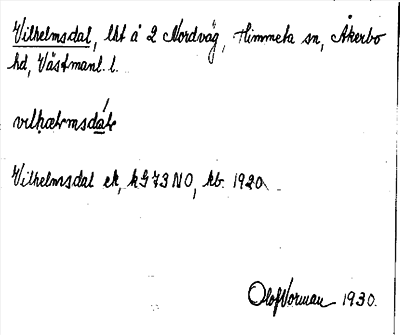 Vilhelmsdal, lht å 2 Nordväg, Himmeta sn, Åkerbo
hd, Västmanl. l.
Vilhelmsdal ek, kG73NO, kb. 1920.
Olof Norman 1930.